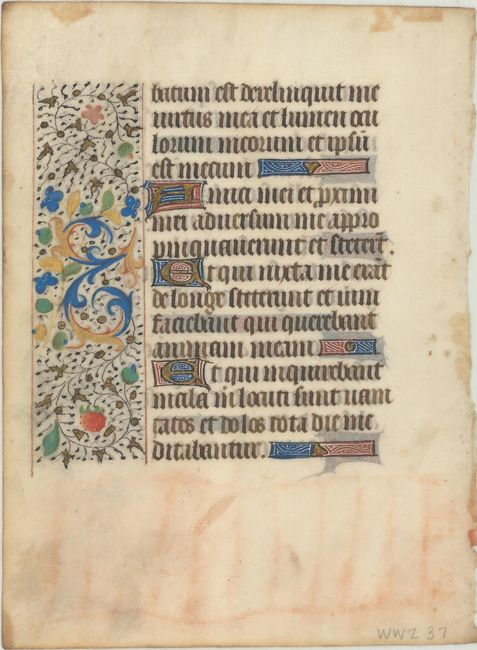 batum est dereliquit me
uirtus mea et lumen ocu
lorum meorum et ipsũ
est mecum
Amici mei et ꝓximi
mei aduersum me appro
pinquauerunt et steterũt.
Et qui iuxta me erãt
de longe steterunt et uim
faciebant qui querebant
animam meam
Et qui inquirebant
mala m locuti sunt uani
tates et dolos tota die me
ditabantur.
WWZ 37